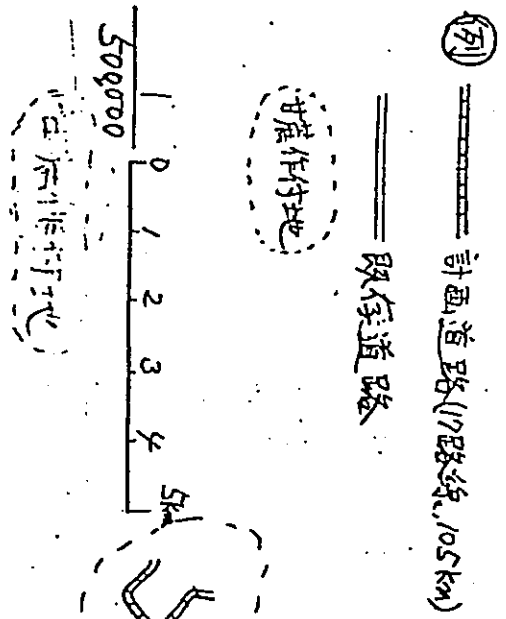 例
計画道路(17路線、105km)
既存道路
甘蔗作付地
1
500000
0 1 2 3 4 5km